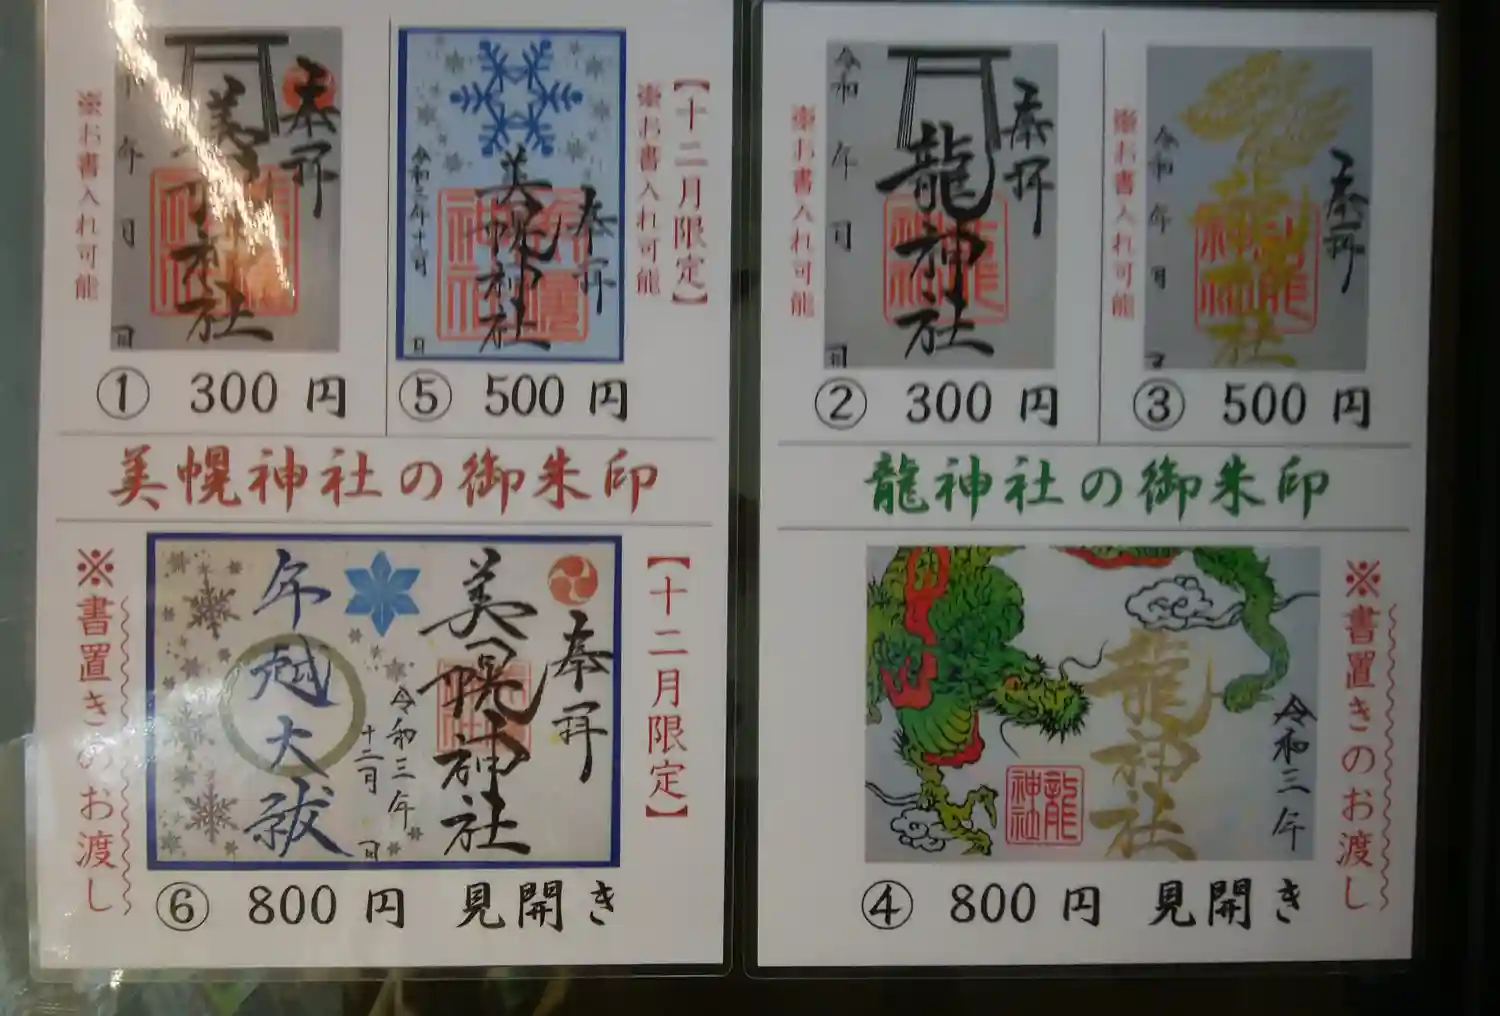 奉拝
美幌神社
年
月
日
※お書入れ可能
① 300 円
【十二月限定】
※お書入れ可能
奉拝
美幌神社
令和三年十二月
日
⑤ 500 円
美幌神社の御朱印
【十二月限定】
奉拝
美幌神社
令和三年
十二月
日
年越大祓
※書置きのお渡し
⑥ 800 円 見開き
奉拝
龍神社
令和
年
月
日
※お書入れ可能
② 300 円
奉拝
龍神社
令和
年
月
日
※お書入れ可能
③ 500 円
龍神社の御朱印
※書置きのお渡し
令和三年
龍神社
龍神社
④ 800 円 見開き